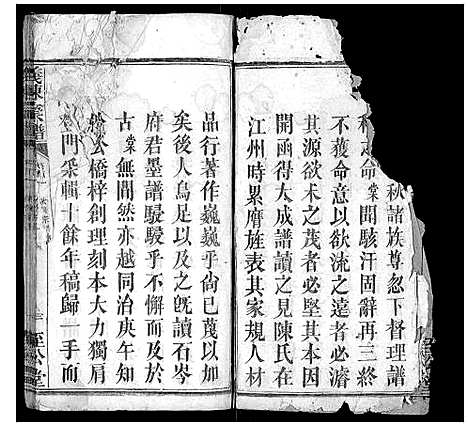 秋諸族尊忽下督理譜
之命棠聞駭汗固辭再三終
不獲命意以欲流之遠者必濬
其源欲木之茂者必堅其本因
開函得大成譜讀之見陳氏在
江州時累膺旌表其家規人材
品行著作巍巍乎尚已蔑以加
矣後人烏足以及之旣讀石岑
府君墨譜駸駸乎不懈而及於
古棠無間然亦越同治庚午知
公橋梓創理刻本大力獨肩
門采輯十餘年稿歸一手而
義陳宗譜
至公堂